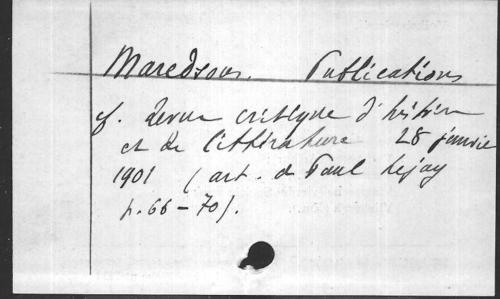 Maredsous. Publications
cf. Revue critique d'histoire
et de littérature 28 janvier
1901 (art. de Paul Lejay
p. 66-70).